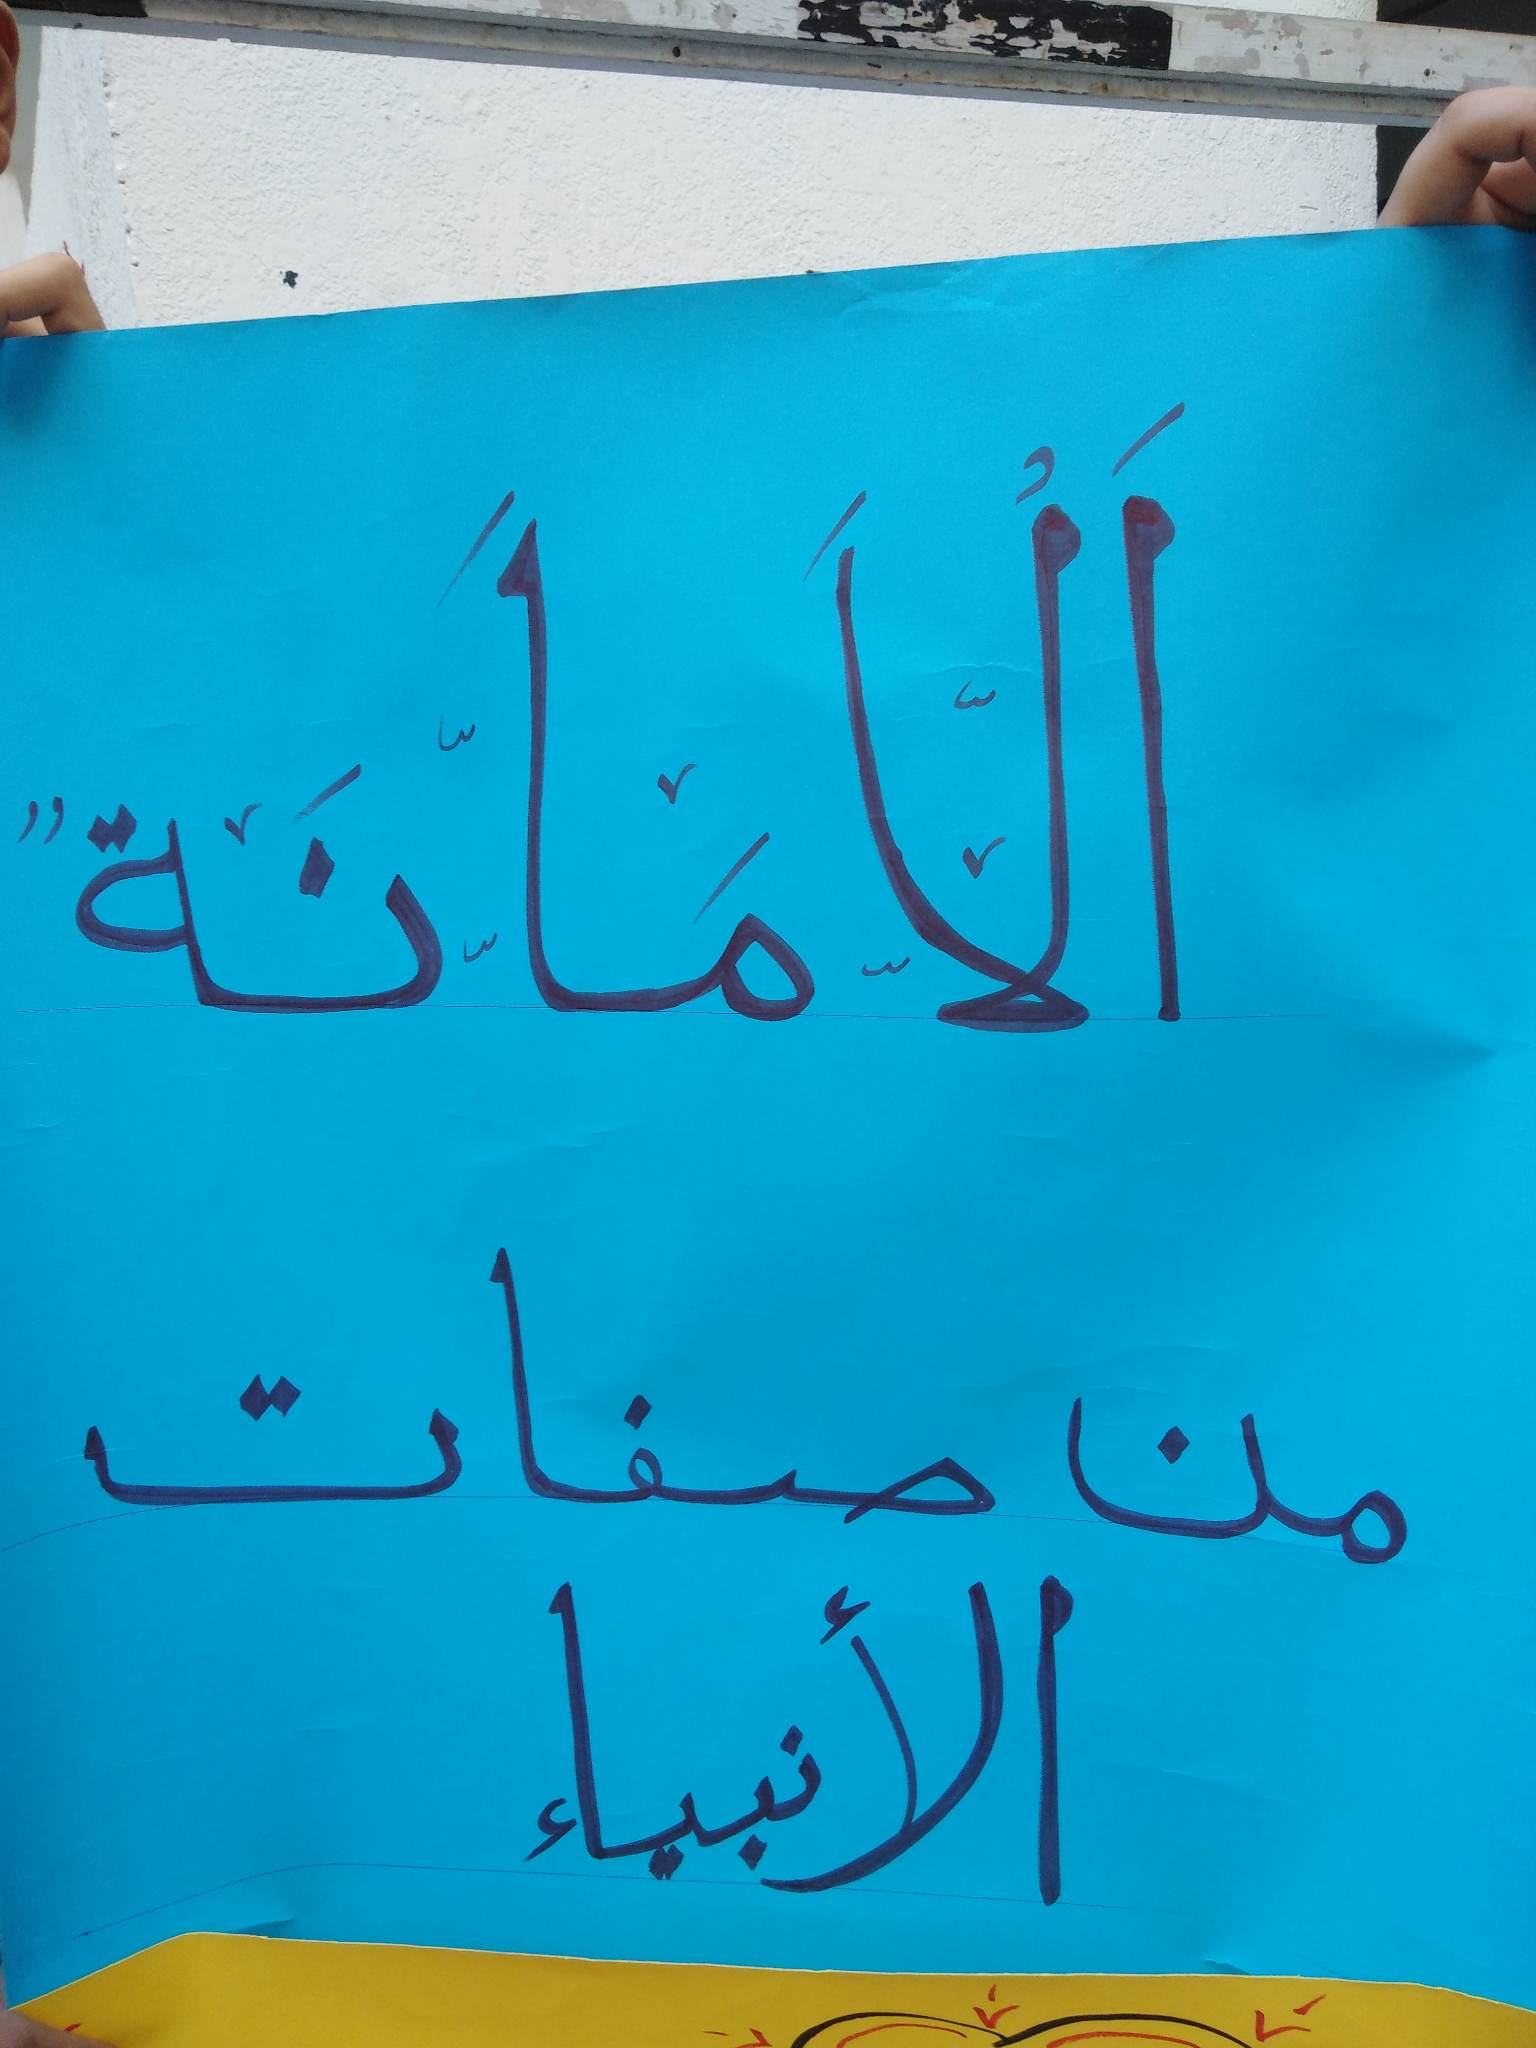 اَلُاَمَانَة
من صفات
الأنبياء